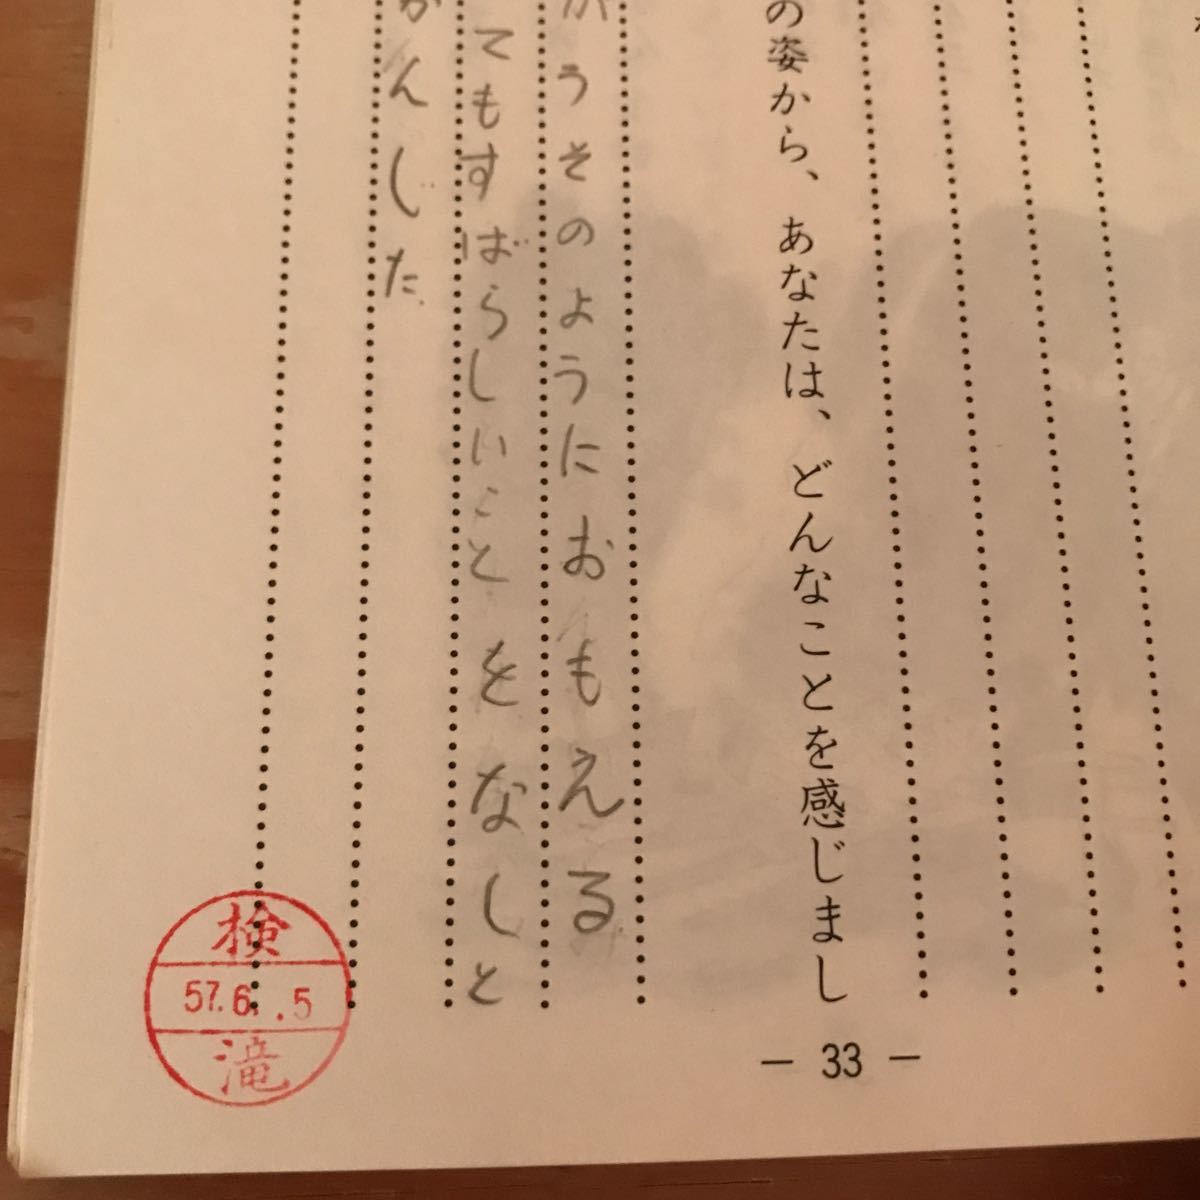 の姿から、あなたは、どんなことを感じまし
がうそのようにおもえる
てもすばらしいことをなしと
かんじた
検
57.6.5
滝
— 33 —